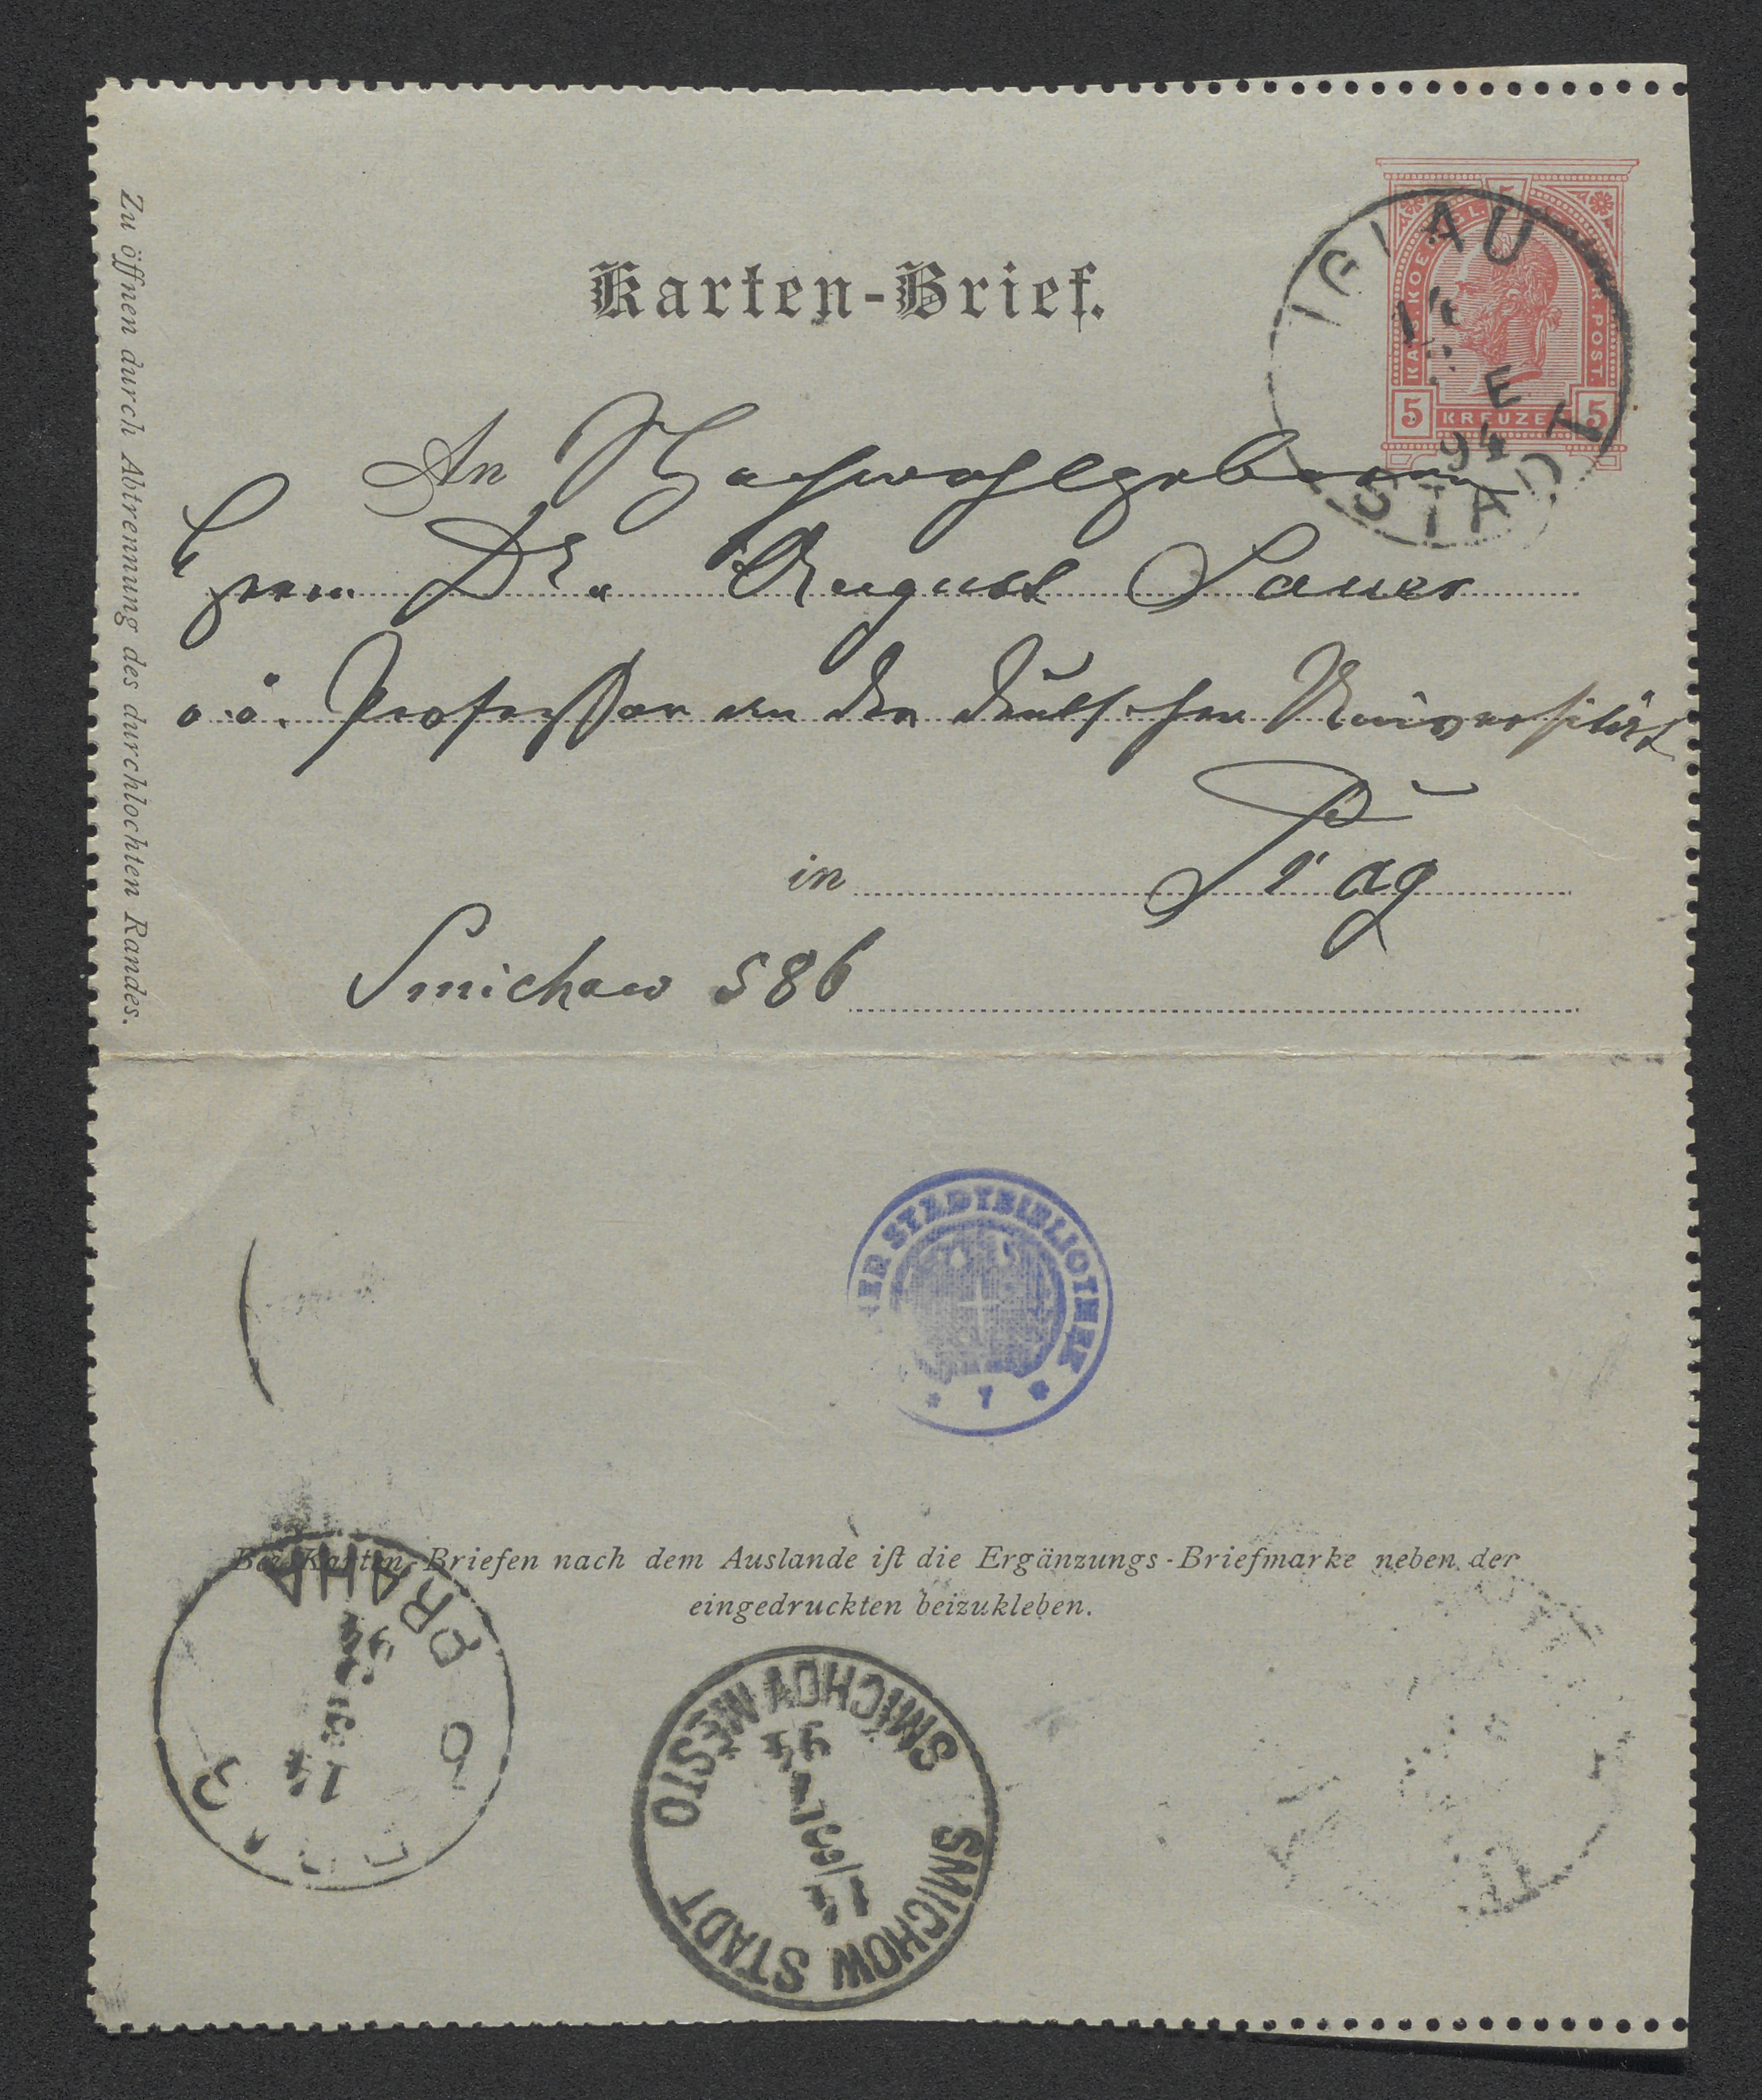 Karten-Brief.
KAIS. KOENIGL. R. POST.
5
5 KREUZER 5
IGLAU STADT
14
E
94
An Hochwohlgeboren
Herrn Dr. August Sauer
o. ö. Professor an der deutschen Universität
in Prag
Smichow 586
Zu öffnen durch Abtrennung des durchlochten Randes.
ER STADTBIBLIOTHEK
* 7 *
Bei Karten-Briefen nach dem Auslande iſt die Ergänzungs-Briefmarke neben der
eingedruckten beizukleben.
PRAHA
94
14
3
SMICHOV MĚSTO
SMICHOW STADT
94